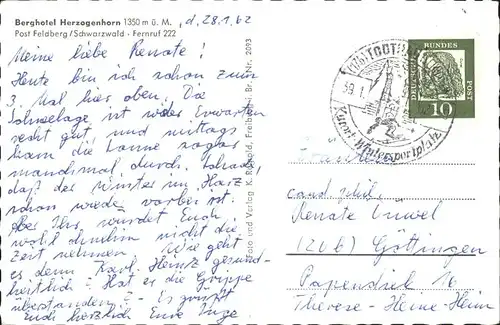 Berghotel Herzogenhorn 1350 m ü. M., d. 28.1.62
Post Feldberg / Schwarzwald - Fernruf 222
Meine liebe Renate!
Heute bin ich schon zum
3. Mal hier oben. Die
Schneelage ist wider Erwarten
recht gut und mittags
kam die Sonne sogar
manchmal durch. Schade,
daß der Winter im Harz
schon wieder vorbei ist.
Aber Ihr würdet Euch
wohl ohnehin nicht die
Zeit nehmen. Wie geht
es denn Karl-Heinz gesund-
heitlich - Hat er die Grippe
überstanden? - Es grüßt
Euch herzlich Eure Inge
Foto und Verlag K. Freiburg i. Br. Nr. 2093
TODTNAU
Kurort-Wintersportplatz
DEUTSCHE BUNDESPOST
10
cand. phil.
Renate
(20b) Göttingen
Papendiek 16
Therese-Heyne-Heim